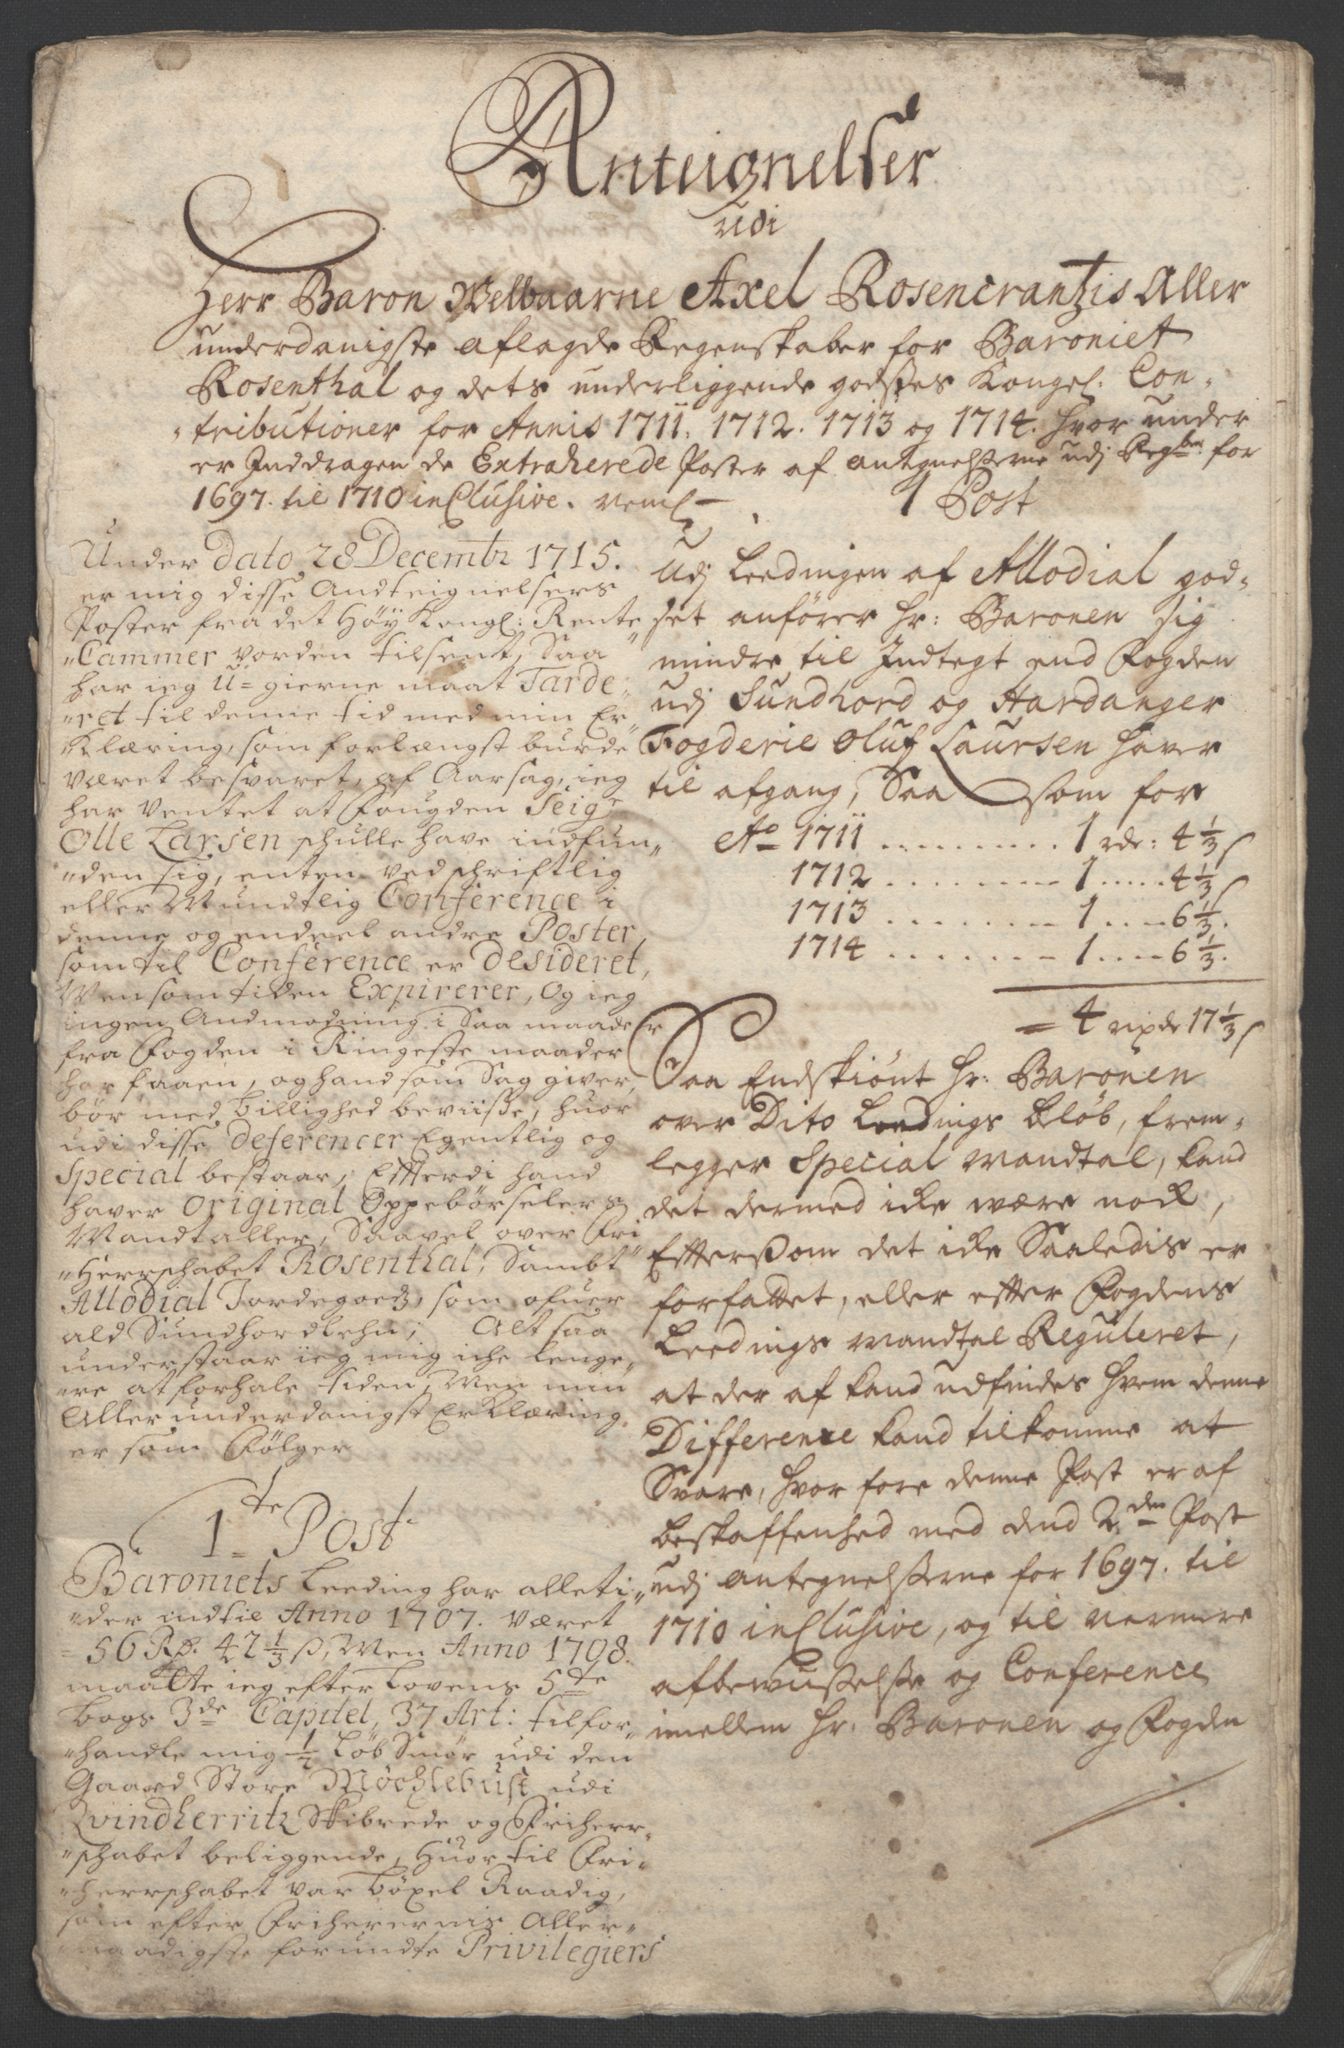 Anteignelser
udi
Herr Baron Welbaarne Axel Rosencrantzis Aller
underdanigste aflagde Regenskaber for Baroniet
Rosenthal og dets underliggende godses Kongel: Con-
tributioner for Annis 1711. 1712. 1713 og 1714. hvor under
er Inddragen de Extraherede Poster af antegnelserne udj Regbn: for
1697. til 1710 inClusive. veml
Under Dato 28 Decembr 1715.
er mig disse Andteignelsers
Poster fra det Høy Kongl: Rente
Cammer vorden tilsent, Saa
har ieg U=gierne maat Tarde-
ret til denne tid med min Er-
Klæring, som forlængst burde
været besvaret, af Aarsag, ieg
har ventet at Fougden Seigr
Olle Larsen schulle have indfun-
den sig, enten ved schriftlig
eller Mundtlig Conference i
denne og endeel andre Poster,
som til Conference er Desideret,
Men som tiden Expirerer, Og ieg
ingen Andmodning i Saa maader
fra Fogden i Ringeste maader
har faaen, og hand som Sag giver,
bør med billighed beviisse, huor
udi disse Deferencer Egentlig og
Special bestaar, Efterdi hand
haver Original Oppebörselers
Mandtaller, Saavel over Fri
Herrschabet Rosenthal, Sambt
Allodial Jordegodz, som ofuer
ald Sundhordlehn; Alt saa
understaar ieg mig iche lenge-
re at forhale tiden, Men min
Aller underdanigst ErKlæring
er som Fölger
1te Post
Baroniets Leeding har alleti-
der indtil Anno 1707. været
56 Rd. 42 1/3 ß, Men Anno 1708.
maatte ieg efter Lovens 5te
bogs 3de Capitel, 37 Art: tilfor-
handle mig 1/2 Löb Smör udi den
Gaard Store Möchlebust udi
Qvindherritz Skibrede og Friherr-
schabet beliggende, Huor til Fri-
herrschabet var Böxel Raadig,
som efter Friherernis Aller-
naadigste forundte Privilegiers
1 Post
Udj Leedingen af Allodial god-
set anfører Hr: Baronen sig
mindre til Indtegt end Fogden
udj Sundhord og Hardanger
Fogderie Oluf Laursen haver
til afgang, Saa som for
Ao 1711 .......... 1 rdr: 4 1/3 ß
1712 .......... 1 ..... 4 1/3 ß
1713 .......... 1 .... 6 1/3.
1714 .......... 1 .... 6 1/3.
= 4 rixdr 17 1/3 ß
Saa Endskiönt Hr: Baronen
over Dito Leedings Belöb, frem-
legger Special Mandtal, kand
det dermed icke være nock,
Eftersom det icke Saaledis er
forfattet, eller efter Fogdens
Leedings Mandtal Reguleret,
at der af kand udfindes hvem denne
Difference kand tilkomme at
Svare, hvor fore denne Post er af
beskaffenhed med dend 2den Post
udj antegnelserne for 1697. til
1710 inClusive, og til nermere
afbewisselse og Conference
imellem Hr: Baronen og Fogden